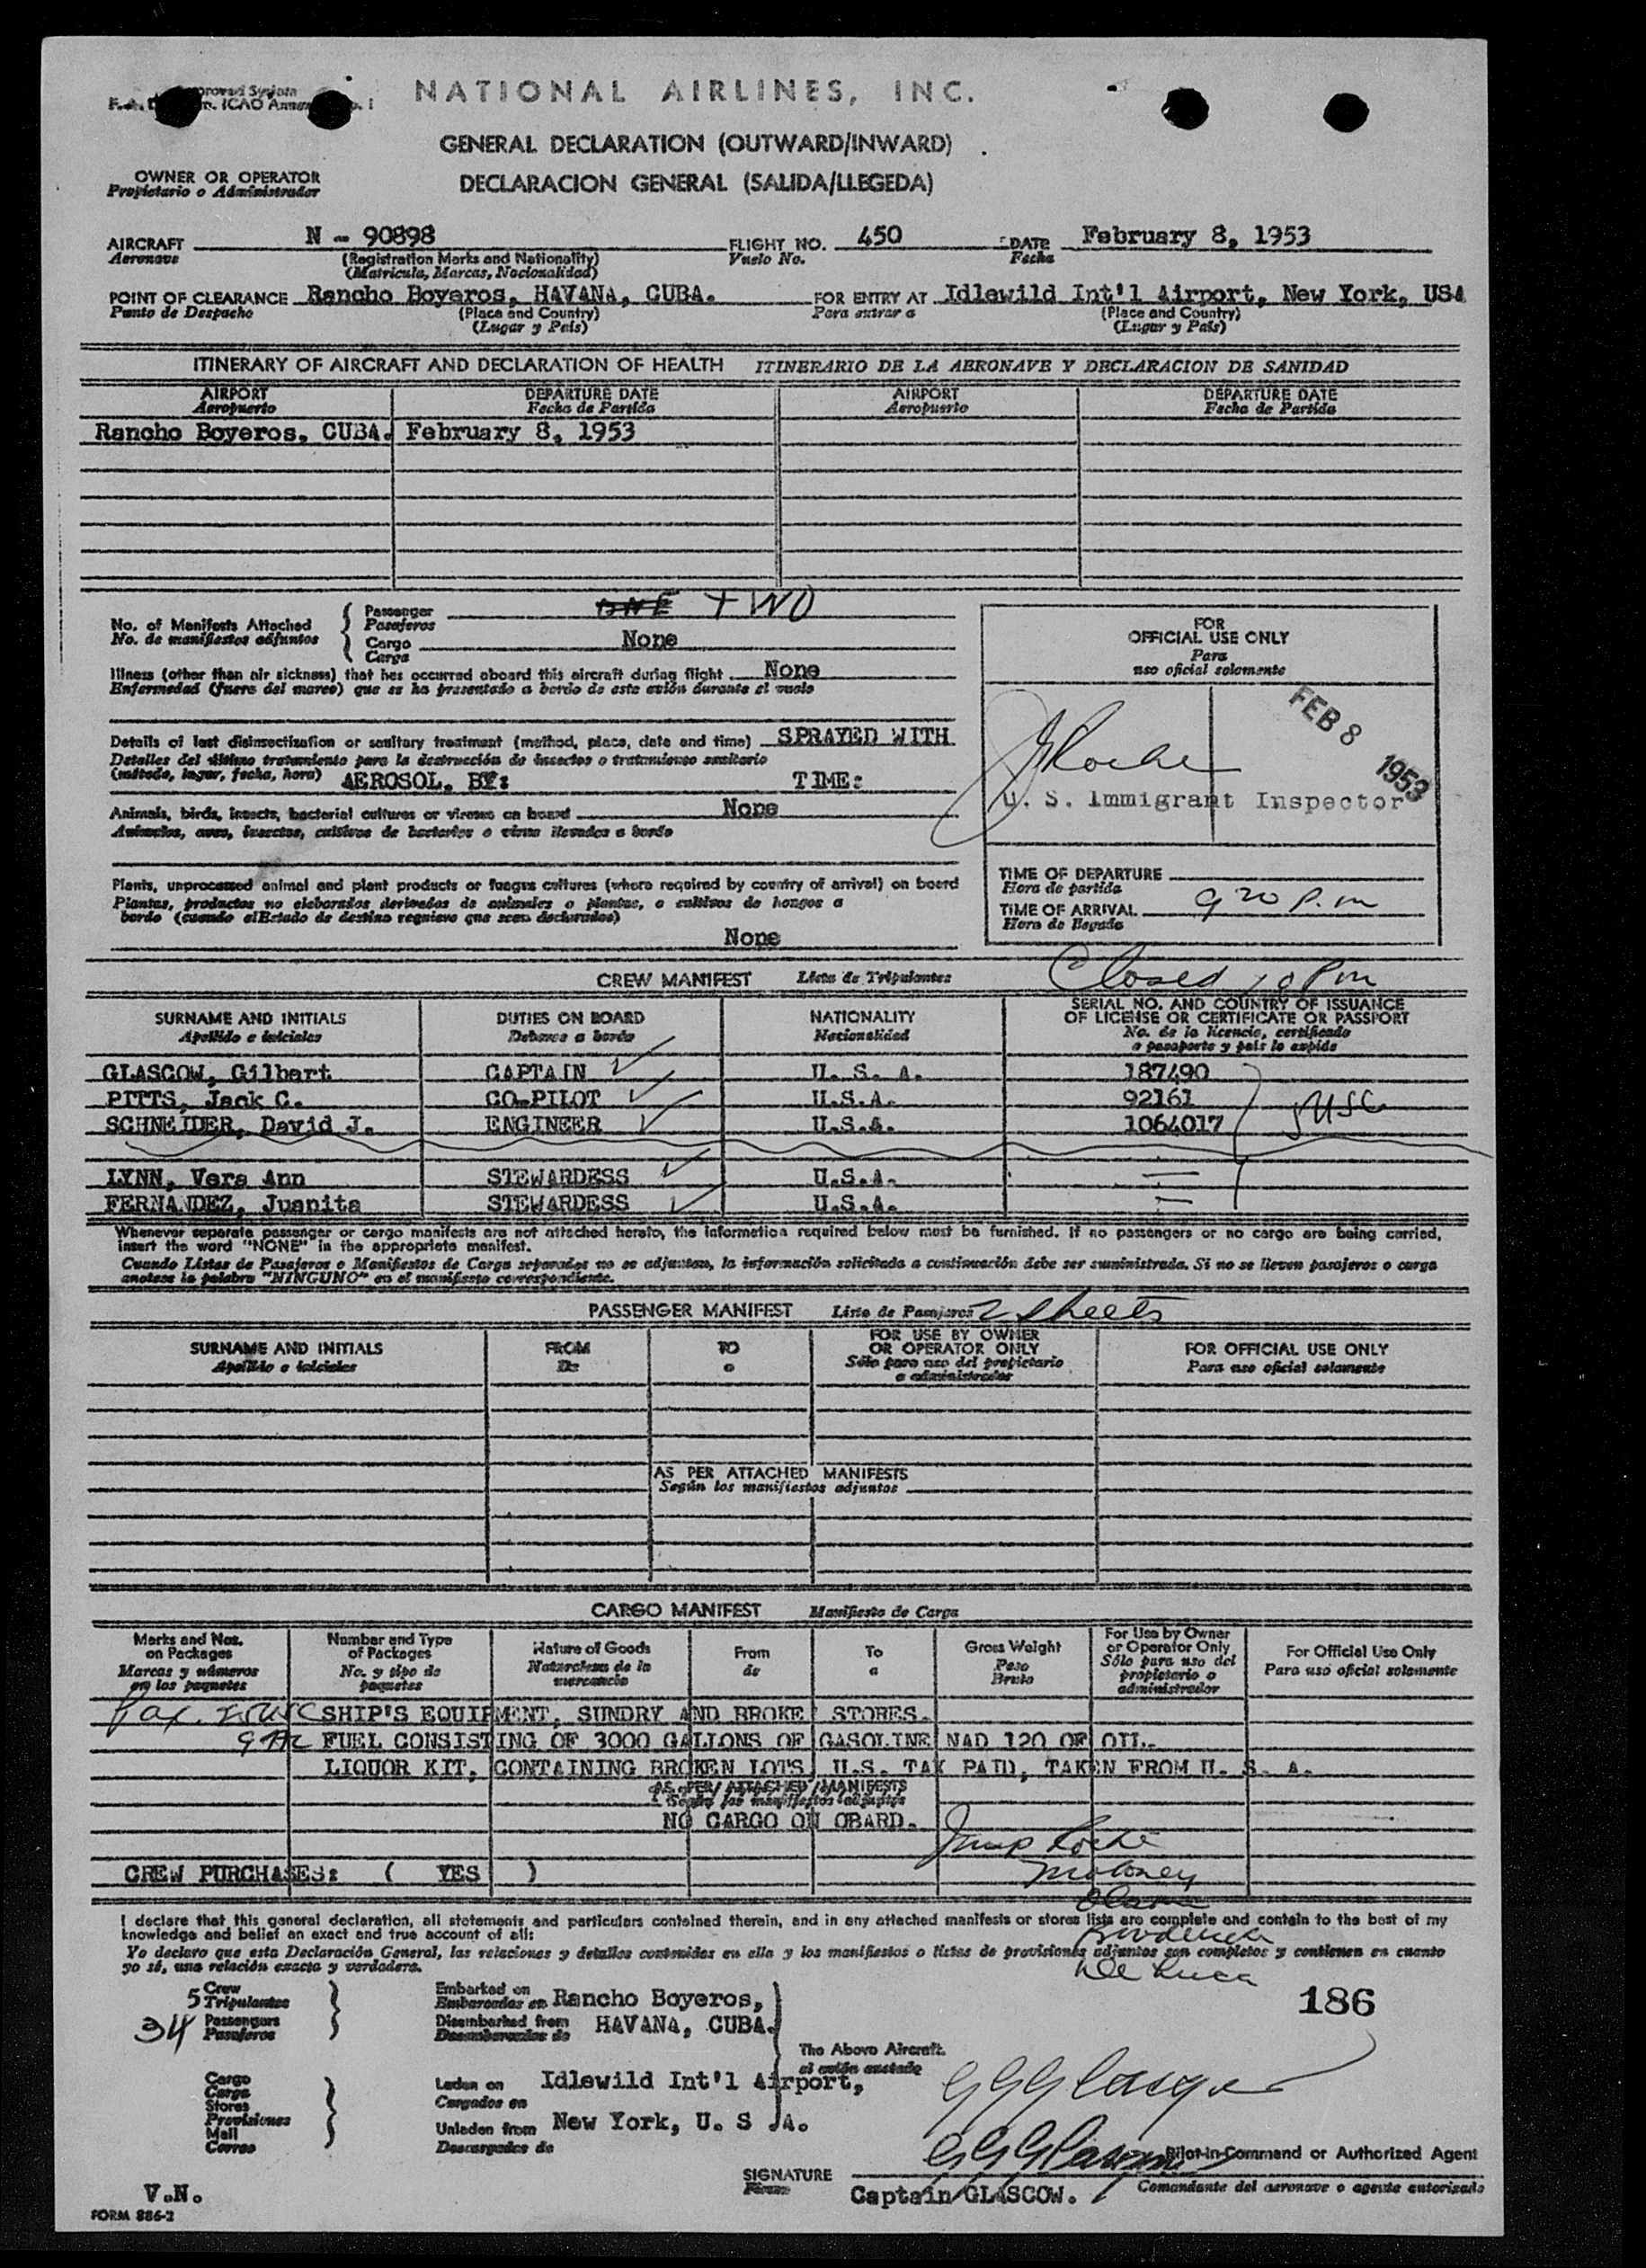 NATIONAL AIRLINES, INC.
GENERAL DECLARATION (OUTWARD/INWARD)
OWNER OR OPERATOR
Propietario o Administrador
DECLARACION GENERAL (SALIDA/LLEGEDA)
AIRCRAFT N - 90898 FLIGHT NO. 450 DATE February 8, 1953
Aeronave (Registration Marks and Nationality) Vuelo No. Fecha
(Matricula, Marcas, Nacionalidad)
POINT OF CLEARANCE Rancho Boyeros, HAVANA, CUBA. FOR ENTRY AT Idlewild Int'l Airport, New York, USA
Punto de Despacho (Place and Country) Para entrar a (Place and Country)
(Lugar y País) (Lugar y País)
ITINERARY OF AIRCRAFT AND DECLARATION OF HEALTH ITINERARIO DE LA AERONAVE Y DECLARACION DE SANIDAD
AIRPORT DEPARTURE DATE AIRPORT DEPARTURE DATE
Aeropuerto Fecha de Partida Aeropuerto Fecha de Partida
Rancho Boyeros, CUBA. February 8, 1953
No. of Manifests Attached Passenger ONE TWO
No. de manifiestos adjuntos Pasajeros
Cargo None
Carga
Illness (other than air sickness) that has occurred aboard this aircraft during flight None
Enfermedad (fuera del mareo) que se ha presentado a bordo de este avión durante el vuelo
Details of last disinsectization or sanitary treatment (method, place, date and time) SPRAYED WITH
Detalles del último tratamiento para la destrucción de insectos o tratamiento sanitario
(método, lugar, fecha, hora) AEROSOL. BY: TIME:
Animals, birds, insects, bacterial cultures or viruses on board None
Animales, aves, insectos, cultivos de bacterias o virus llevados a bordo
Plants, unprocessed animal and plant products or fungus cultures (where required by country of arrival) on board
Plantas, productos no elaborados derivados de animales o plantas, o cultivos de hongos a
bordo (cuando el Estado de destino requiere que sean declarados)
None
FOR
OFFICIAL USE ONLY
Para
uso oficial solamente
FEB 8 1953
J Roche
U. S. Immigrant Inspector
TIME OF DEPARTURE
Hora de partida
TIME OF ARRIVAL 9 20 P.m
Hora de llegada
Closed 10 Pm
CREW MANIFEST Lista de Tripulantes
SURNAME AND INITIALS DUTIES ON BOARD NATIONALITY SERIAL NO. AND COUNTRY OF ISSUANCE
OF LICENSE OR CERTIFICATE OR PASSPORT
Apellido e iniciales Deberes a bordo Nacionalidad No. de la licencia, certificado
o pasaporte y país lo expide
GLASCOW, Gilbert CAPTAIN U. S. A. 187490
PITTS, Jack C. CO-PILOT U.S.A. 92161 USC
SCHNEIDER, David J. ENGINEER U.S.A. 1064017
LYNN, Vera Ann STEWARDESS U.S.A.
FERNANDEZ, Juanita STEWARDESS U.S.A.
Whenever separate passenger or cargo manifests are not attached hereto, the information required below must be furnished. If no passengers or no cargo are being carried,
insert the word "NONE" in the appropriate manifest.
Cuando Listas de Pasajeros o Manifiestos de Carga separados no se adjuntan, la información solicitada a continuación debe ser suministrada. Si no se lleven pasajeros o carga
anotese la palabra "NINGUNO" en el manifiesto correspondiente.
PASSENGER MANIFEST Lista de Pasajeros 2 sheets
SURNAME AND INITIALS FROM TO FOR USE BY OWNER
OR OPERATOR ONLY FOR OFFICIAL USE ONLY
Apellido e iniciales De a Sólo para uso del propietario
o administrador Para uso oficial solamente
AS PER ATTACHED MANIFESTS
Según los manifiestos adjuntos
CARGO MANIFEST Manifiesto de Carga
Marks and Nos.
on Packages
Marcas y números
en los paquetes
Number and Type
of Packages
No. y tipo de
paquetes
Nature of Goods
Naturaleza de la
mercancia
From
de
To
a
Gross Weight
Peso
Bruto
For Use by Owner
or Operator Only
Sólo para uso del
propietario o
administrador
For Official Use Only
Para uso oficial solamente
SHIP'S EQUIPMENT, SUNDRY AND BROKE STORES.
FUEL CONSISTING OF 3000 GALLONS OF GASOLINE NAD 120 OF OIL.
LIQUOR KIT, CONTAINING BROKEN LOTS, U.S. TAX PAID, TAKEN FROM U. S. A.
AS PER ATTACHED MANIFESTS
Según los manifiestos adjuntos
NO CARGO ON OBARD.
Insp Roche
CREW PURCHASES: ( YES )
Moloney
Olson
I declare that this general declaration, all statements and particulars contained therein, and in any attached manifests or stores lists are complete and contain to the best of my
knowledge and belief an exact and true account of all:
Yo declaro que esta Declaración General, las relaciones y detalles contenidos en ella y los manifiestos o listas de provisiones adjuntos son completos y contienen en cuanto
yo sé, una relación exacta y verdadera.
Broderick
De Luca
5 Crew
Tripulantes
34 Passengers
Pasajeros
Embarked on
Embarcados en Rancho Boyeros,
Disembarked from
Desembarcados de HAVANA, CUBA.
186
The Above Aircraft.
el avión anotado
Cargo
Carga
Stores
Provisiones
Mail
Correo
Laden on
Cargados en Idlewild Int'l Airport,
Unladen from
Descargados de New York, U. S. A.
G G Glasgow
G G Glasgow
Pilot-in-Command or Authorized Agent
SIGNATURE
Firma
Captain GLASCOW. Comandante del aeronave o agente autorizado
V.N.
FORM 886-2